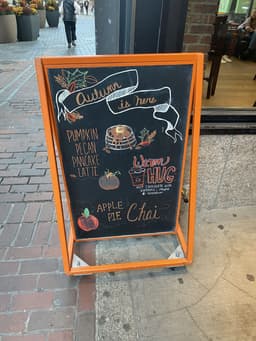 Autumn is here
PUMPKIN
PECAN
PANCAKE
LATTE
Warm
HUG
APPLE
PIE Chai